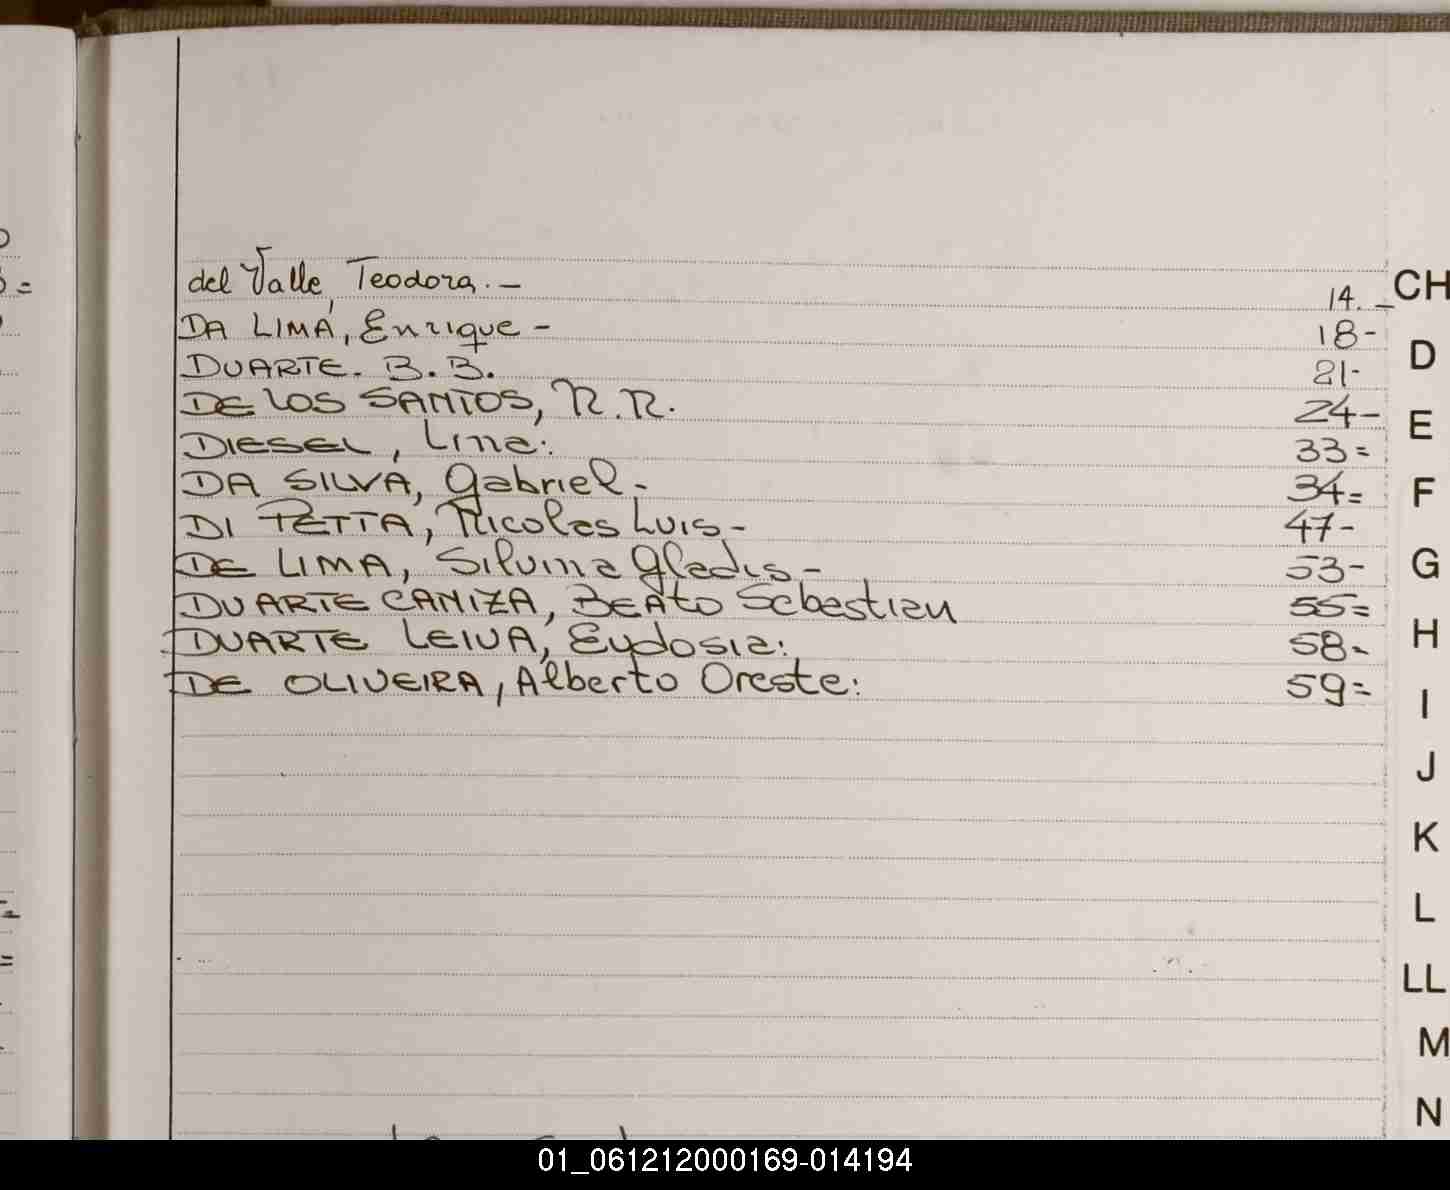 del Valle, Teodora.- 14.-
DA LIMA, Enrique - 18-
DUARTE. B.B. 21-
DE LOS SANTOS, R.R. 24-
DIESEL, Lina: 33=
DA SILVA, Gabriel.- 34=
DI PETTA, Nicolas Luis- 47-
DE LIMA, Silvina Gladis- 53-
DUARTE CANIZA, BEAto Sebastian 55=
DUARTE LEIVA, Eudosia: 58-
DE OLIVEIRA, Alberto Oreste: 59=
CH
D
E
F
G
H
I
J
K
L
LL
M
N
01_061212000169-014194